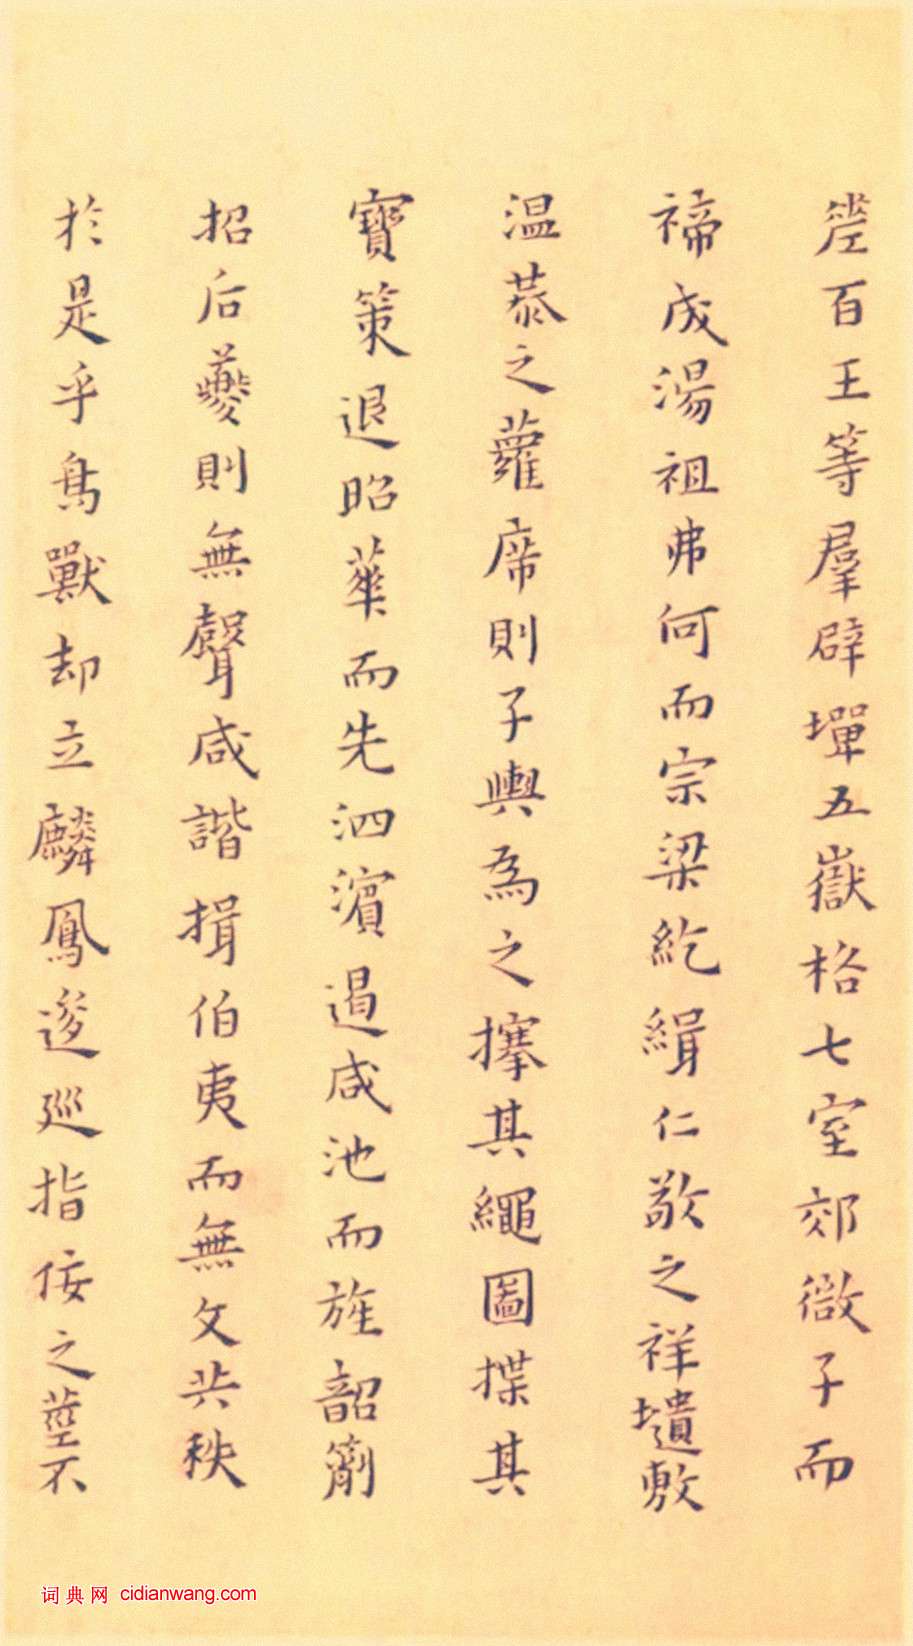 百王等羣辟墠五嶽格七室郊微子而
禘成湯祖弗何而宗梁紇緝仁敬之祥壝敷
溫恭之蘿席則子輿為之搴其繩圖揲其
寶策退昭華而先泗濱遏咸池而旌韶箾
招后夔則無聲咸諧揖伯夷而無文共秩
於是乎鳥獸却立麟鳳逡巡指佞之莖不
词典网 cidianwang.com